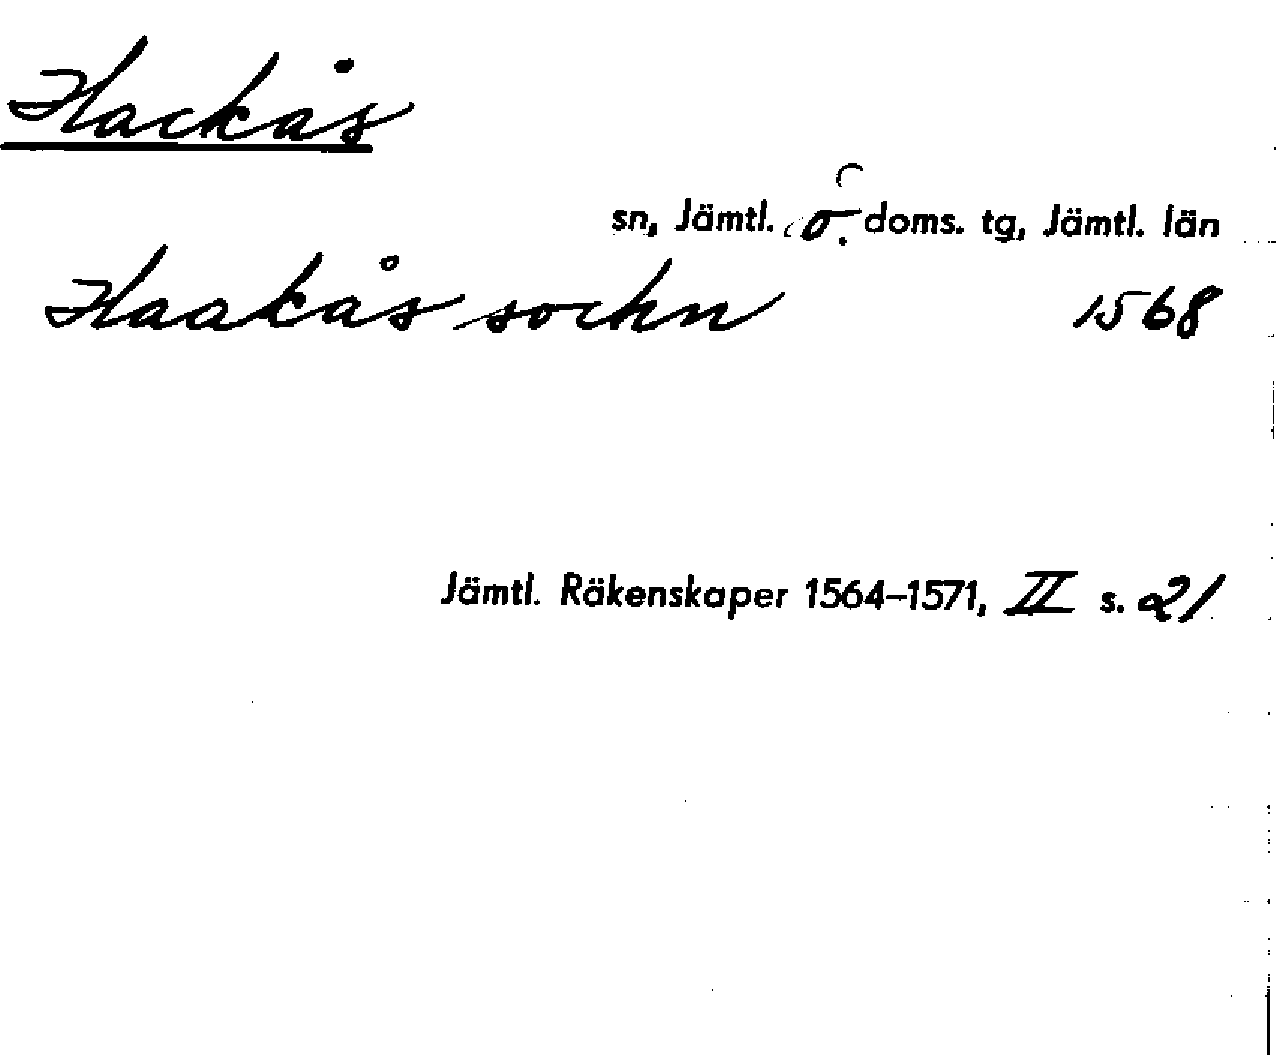 Hackås
sn, Jämtl. ö. doms. tg, Jämtl. län
Haakås sockn 1568
Jämtl. Räkenskaper 1564–1571, II s. 21